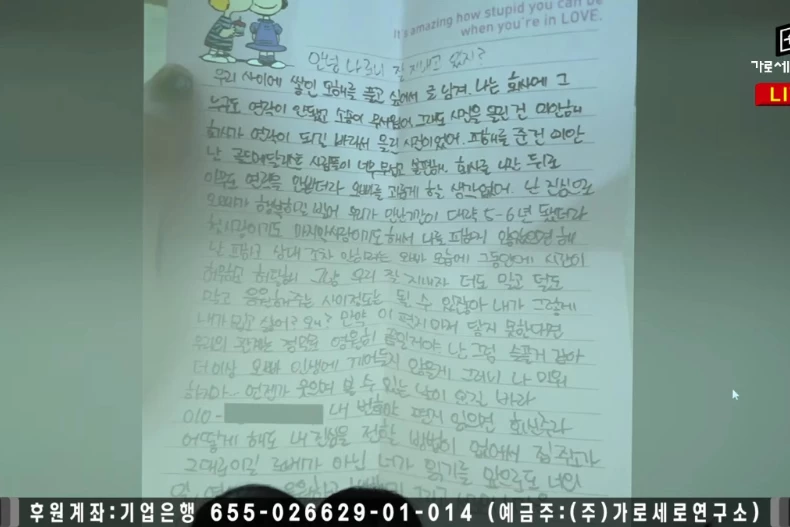 It's amazing how stupid you can be
when you're in LOVE.
가로세
LI
안녕 나르니 잘 지내고 있지?
우리 사이에 쌓인 오해를 풀고 싶어서 글 남겨. 나는 회사에 그
누구도 연락이 안됐고 소송이 무서웠어. 그래도 사진을 올린 건 미안해
회사가 연락이 되길 바라서 올린 사진이었어. 피해를 준건 미안
난 골드메달리스트 사람들이 너무 무섭고 불편해. 회사를 나간 뒤로
아무도 연락을 안받더라 오빠를 괴롭게 할 생각없어. 난 진심으로
오빠가 행복하길 빌어 우리가 만난기간이 대략 5-6년 됐더라
첫사랑이기도 마지막사랑이기도 해서 나를 피하지 않았으면 해
난 상대 조차 안하려는 오빠 모습에 그동안에 시간이
허무하고 허탈해 그냥 우리 잘 지내자 더도 말고 덜도
말고 응원해주는 사이정도는 될 수 있잖아 내가 그렇게
내가 밉고 싫어? 왜? 만약 이 편지마저 닿지 못한다면
우리의 관계는 정말로 영원히 끝인거야. 난 그럼 슬플거 같아
더이상 오빠 인생에 끼어들지 않을게 그러니 나 미워
하지마.. 언젠가 웃으며 볼 수 있는 날이 오길 바라
010- 내 번호야 편지 읽으면 회신주라
어떻게 해도 내 진심을 전할 방법이 없어서 집 주소가
그대로이길 로베가 아닌 너가 읽기를 앞으로도 너의
후원계좌:기업은행 655-026629-01-014 (예금주:(주)가로세로연구소)